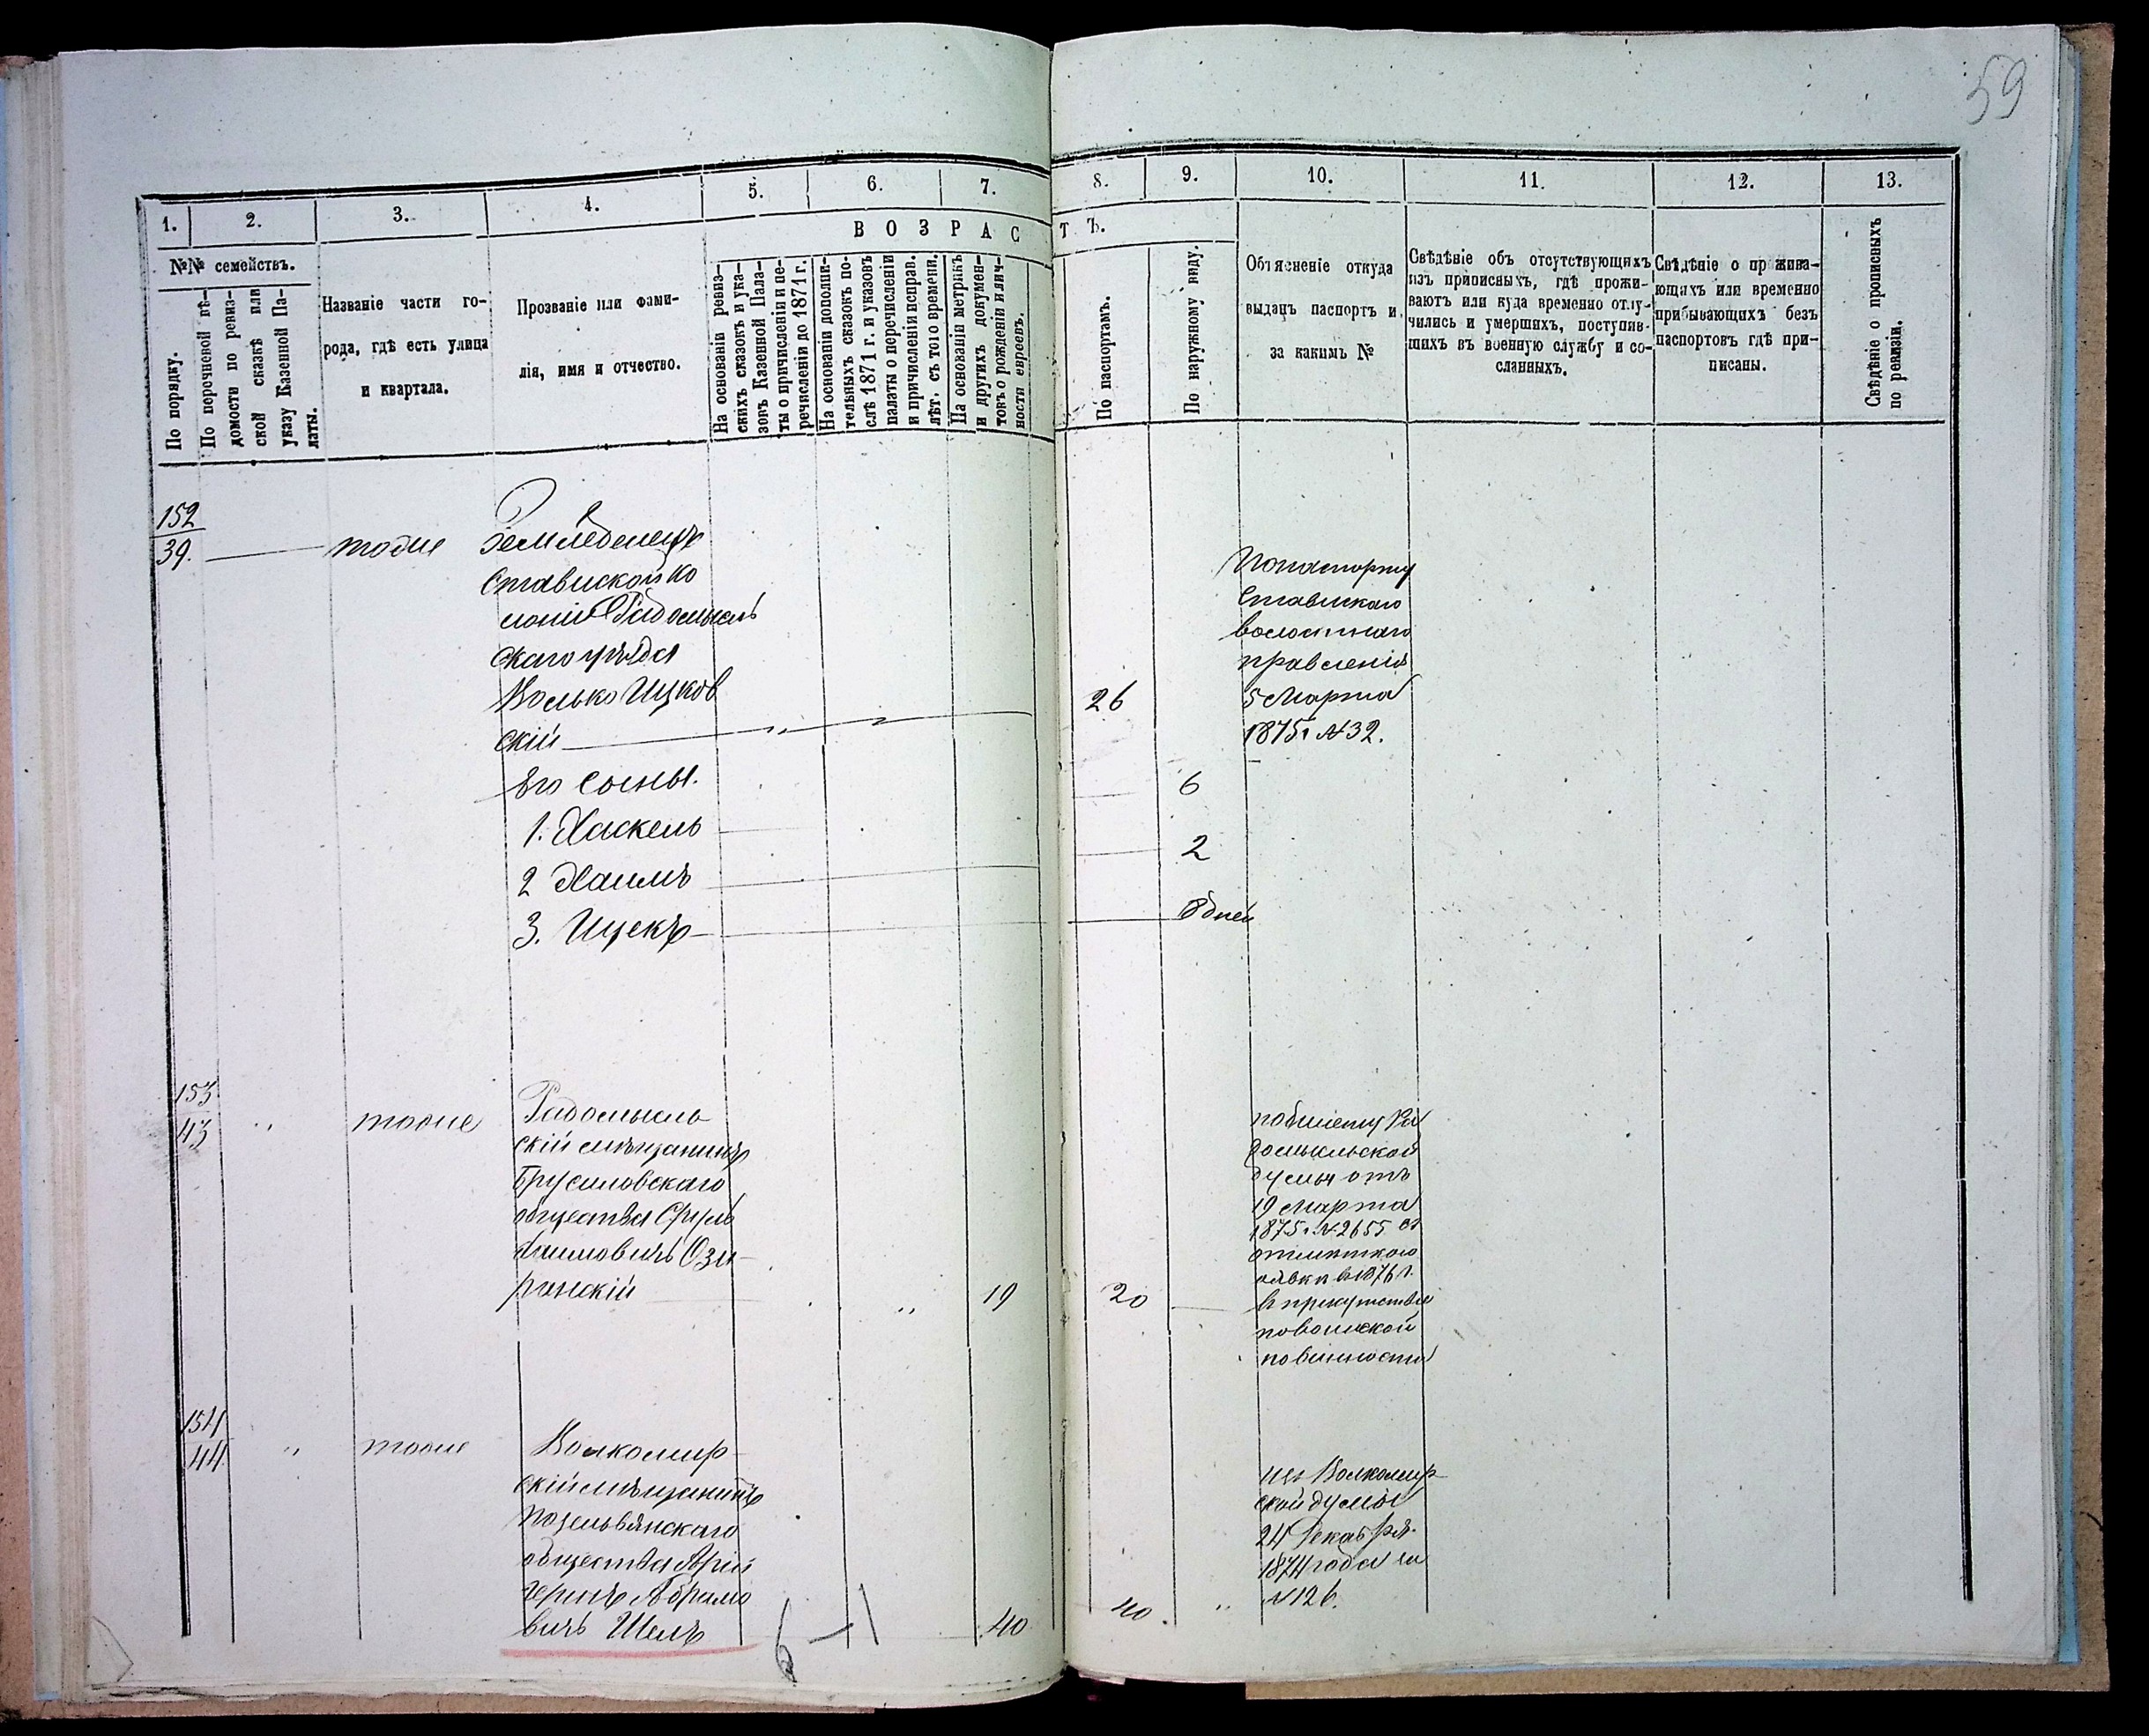 59
1. 2. 3. 4. 5. 6. 7. 8. 9. 10. 11. 12. 13.
ВОЗРАСТЪ.
№№ семействъ.
По порядку.
По перечневой вѣ-
домости по ревиз-
ской сказкѣ или
указу Казенной Па-
латы.
Названіе части го-
рода, гдѣ есть улица
и квартала.
Прозваніе или фами-
лія, имя и отчество.
На основаніи ревиз-
скихъ сказокъ и ука-
зокъ Казенной Пала-
ты о причисленіи и пе-
речисленіи до 1871 г.
На основаніи дополни-
тельныхъ сказокъ по-
слѣ 1871 г. и указовъ
палаты о перечисленіи
и причисленіи исправ.
лѣт. съ того времени.
На основаніи метрикъ
и другихъ докумен-
токъ о рожденіи и лич-
ности евреевъ.
По паспортамъ.
По наружному виду.
Объясненіе откуда
выданъ паспортъ и
за какимъ №
Свѣдѣніе объ отсутствующихъ
изъ приписныхъ, гдѣ прожи-
ваютъ или куда временно отлу-
чились и умершихъ, поступив-
шихъ въ военную службу и со-
сланныхъ.
Свѣдѣніе о прожива-
ющихъ или временно
прибывающихъ безъ
паспортовъ гдѣ при-
писаны.
Свѣдѣніе о прописныхъ
по ревизіи.
152
39.
тоже
Земледелецъ
Ставиской ко
лоніи Радомысль
скаго уѣзда
Волько Ицков
скій
26
Попаспорту
Ставискаго
волостнаго
правленія
5 Марта
1875 г №32.
Его Сыны.
6
1. Хаскель
2
2 Хаимъ
8 дней
3. Ицекъ
153
43
тоже
Радомысль
скій мѣщанинъ
Брусиловскаго
общества Сруль
Хаимовичъ Ози
ранскій
19
20
Радомысльской
думы отъ
19 Марта
1875 г. №2655 съ
отмѣткою
явки въ 1876 г.
въ присутствіе
повоинской
повинности
154
44
тоже
Вилкомир
скій мѣщанинъ
общества
Герцъ Абрамо
вичъ Шелъ
6 – 1
40
40
изъ Вилкомир
ской думы
24 Декабря
1874 года за
№126.